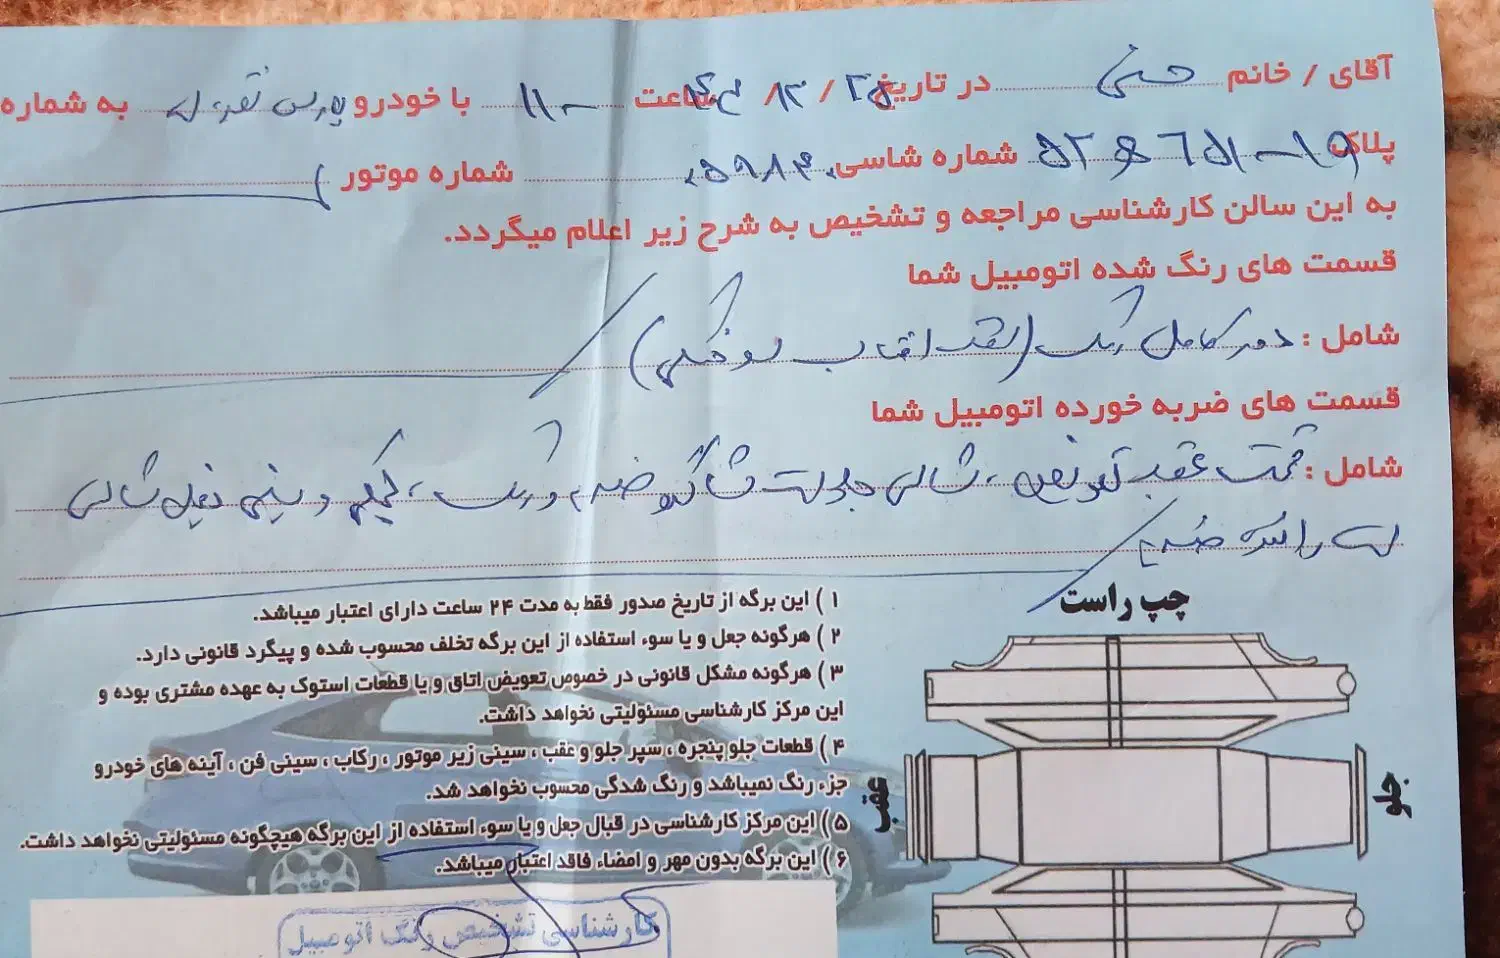 آقای / خانم حسنی در تاریخ ۲۵ / ۱۲ / ساعت ۱۱۰۰ با خودرو پارس نقره ای به شماره
پلاک شماره شاسی شماره موتور
به این سالن کارشناسی مراجعه و تشخیص به شرح زیر اعلام میگردد.
قسمت های رنگ شده اتومبیل شما
شامل : دور کامل رنگ (سقف افتاب سوختگی)
قسمت های ضربه خورده اتومبیل شما
شامل : قسمت عقب تعویض ، شاسی جلو شاگرد ضربه و رنگ ، و سینی شاسی
راننده ضربه
۱ ) این برگه از تاریخ صدور فقط به مدت ۲۴ ساعت دارای اعتبار میباشد.
۲ ) هرگونه جعل و یا سوء استفاده از این برگه تخلف محسوب شده و پیگرد قانونی دارد.
۳ ) هرگونه مشکل قانونی در خصوص تعویض اتاق و یا قطعات استوک به عهده مشتری بوده و
این مرکز کارشناسی مسئولیتی نخواهد داشت.
۴ ) قطعات جلو پنجره ، سپر جلو و عقب ، سینی زیر موتور ، رکاب ، سینی فن ، آینه های خودرو
جزء رنگ نمیباشد و رنگ شدگی محسوب نخواهد شد.
۵ ) این مرکز کارشناسی در قبال جعل و یا سوء استفاده از این برگه هیچگونه مسئولیتی نخواهد داشت.
۶ ) این برگه بدون مهر و امضاء فاقد اعتبار میباشد.
چپ راست
جلو
عقب
کارشناسی تشخیص رنگ اتومبیل